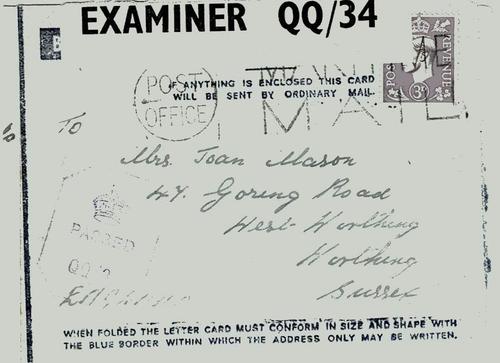 EXAMINER QQ/34
IF ANYTHING IS ENCLOSED THIS CARD
WILL BE SENT BY ORDINARY MAIL.
POST
OFFICE
MAIL
POST
REVENUE
3D
To
Mrs. Joan Mason
44. Goring Road
West-Worthing
Worthing
Sussex
ENGLAND
PASSED
QQ
WHEN FOLDED THE LETTER CARD MUST CONFORM IN SIZE AND SHAPE WITH
THE BLUE BORDER WITHIN WHICH THE ADDRESS ONLY MAY BE WRITTEN.